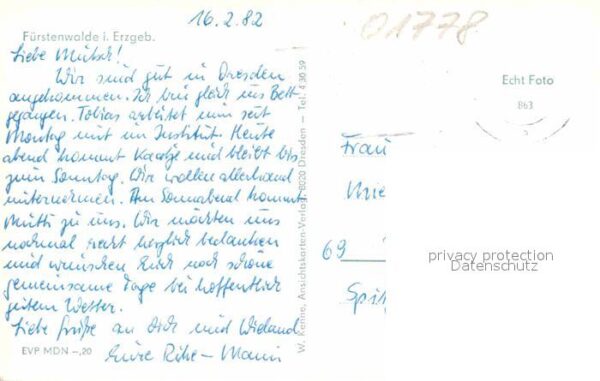 16.2.82
01778
Fürstenwalde i. Erzgeb.
Liebe Mutsch!
Wir sind gut in Dresden
angekommen. Ich bin gleich ins Bett
gegangen. Tobias arbeitet nun seit
Montag mit im Institut. Heute
abend kommt Kaatje und bleibt bis
zum Sonntag. Wir wollen allerhand
unternehmen. Am Sonnabend kommt
Mutti zu uns. Wir möchten uns
nochmal recht herzlich bedanken
und wünschen Euch noch schöne
gemeinsame Tage bei hoffentlich
gutem Wetter.
Liebe Grüße an Dich und Wieland
Eure Rike –
EVP MDN –,20
W. Kenne, Ansichtskarten-Verlag, 8020 Dresden — Tel. 4 30 59
Echt Foto
863
Frau
69
privacy protection
Datenschutz